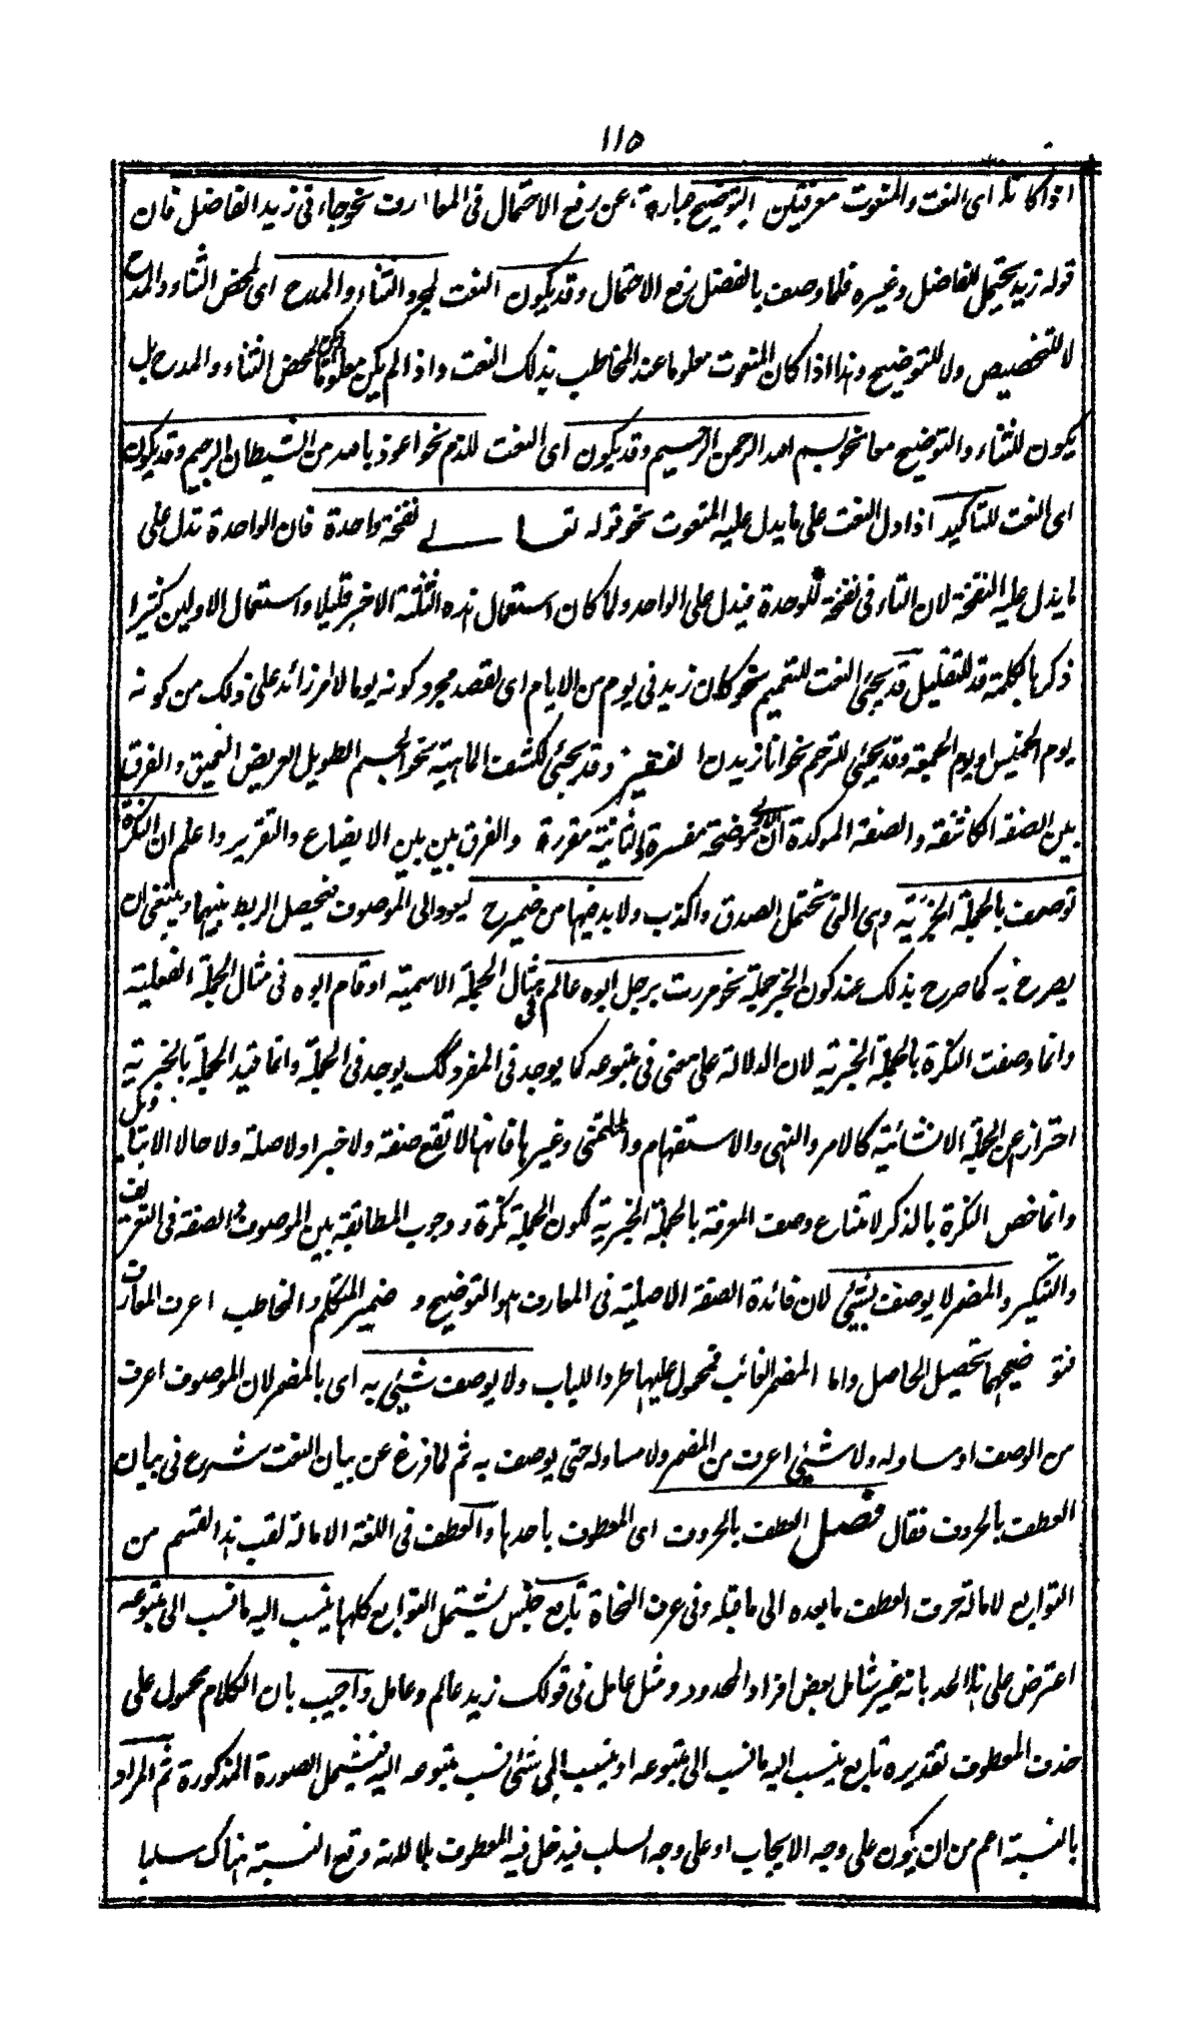 ١١٥
اذا كانا اى النعت والمنعوت معرفتين التوضيح عبارة عن رفع الاحتمال فى المعارف نحو جاءنى زيد الفاضل فان
قوله زيد يحتمل الفاضل وغيره فلما وصف بالفضل رفع الاحتمال وقد يكون النعت لمجرد الثناء والمدح اى لمحض الثناء والمدح
لا للتخصيص ولا للتوضيح وهذا اذا كان المنعوت معلوما عند المخاطب بذلك النعت واذا لم يكن معلوما لم يكن لمحض الثناء والمدح بل
يكون للثناء والتوضيح معا نحو بسم الله الرحمن الرحيم وقد يكون اى النعت للذم نحو اعوذ بالله من الشيطان الرجيم وقد يكون
اى النعت للتاكيد اذا دل النعت على ما يدل عليه المنعوت نحو قوله تعالى نفخة واحدة فان الواحدة تدل على
ما يدل عليه النفخة لان التاء فى نفخة للوحدة فيدل على الواحد ولما كان استعمال هذه الثلثة الاخر قليلا واستعمال الاولين كثيرا
ذكرها بكلمة قد للتقليل قد يجئ النعت للتعميم نحو كان زيد فى يوم من الايام اى لقصد مجرد كونه يوما لا امر زائد على ذلك من كونه
يوم الخميس او يوم الجمعة وقد يجئ للترحم نحو انا زيد ن الفقير وقد يجئ لكشف الماهية نحو الجسم الطويل العريض العميق والفرق
بين الصفة الكاشفة والصفة الموكدة ان الاولى موضحة مفسرة والثانية مقررة والفرق بين بين الايضاع والتقرير واعلم ان النكرة
توصف بالجملة الخبرية وهى التى تحتمل الصدق والكذب ولا بد فيها من ضمير ح ليعود الى الموصوف فيحصل الربط بينهما وينبغى ان
يصرح به كما صرح بذلك عند كون الخبر جملة نحو مررت برجل ابوه عالم فى مثال الجملة الاسمية او قام ابوه فى مثال الجملة الفعلية
وانما وصفت النكرة بالجملة الخبرية لان الدلالة على معنى فى متبوعه كما يوجد فى المفرد كك يوجد فى الجملة وانما قيد الجملة بالخبرية
احتراز عن الجملة الانشائية كالامر والنهى والاستفهام والتمنى وغيرها فانها لا تقع صفة ولا خبرا ولا صلة ولا حالا الا بتاويل
وانما خص النكرة بالذكر لامتناع وصف المعرفة بالجملة الخبرية لكون الجملة نكرة ووجوب المطابقة بين الموصوف والصفة فى التعريف
والتنكير والمضمر لا يوصف بشئ لان فائدة الصفة الاصلية فى المعارف هو التوضيح و ضمير المتكلم والمخاطب اعرف المعارف
فتوضيحهما تحصيل الحاصل واما المضمر الغائب فمحمول عليها طردا للباب ولا يوصف شئ به اى بالمضمر لان الموصوف اعرف
من الوصف او مساو له ولا شئ اعرف من المضمر ولا مساو له حتى يوصف به ثم لما فرغ عن بيان النعت شرع فى بيان
العطف بالحروف فقال فصل العطف بالحروف اى المعطوف باحدها والعطف فى اللغة الامالة لقب هذا القسم من
التوابع لامالة حرف العطف ما بعده الى ما قبله وفى عرف النحاة تابع جنس يشتمل التوابع كلها ينسب اليه ما نسب الى متبوعه
اعترض على هذا الحد بانه غير شامل لبعض افراد المحدود ومثل عامل فى قولك زيد عالم وعامل واجيب بان الكلام محمول على
حذف المعطوف تقديره تابع ينسب اليه ما نسب الى متبوعه او ينسب الى شئ نسب متبوعه اليه فيشتمل الصورة المذكورة ثم المراد
بالنسبة اعم من ان يكون على وجه الايجاب او على وجه السلب فيدخل فيه المعطوف بلا لانه وقع النسبة هناك سلبا